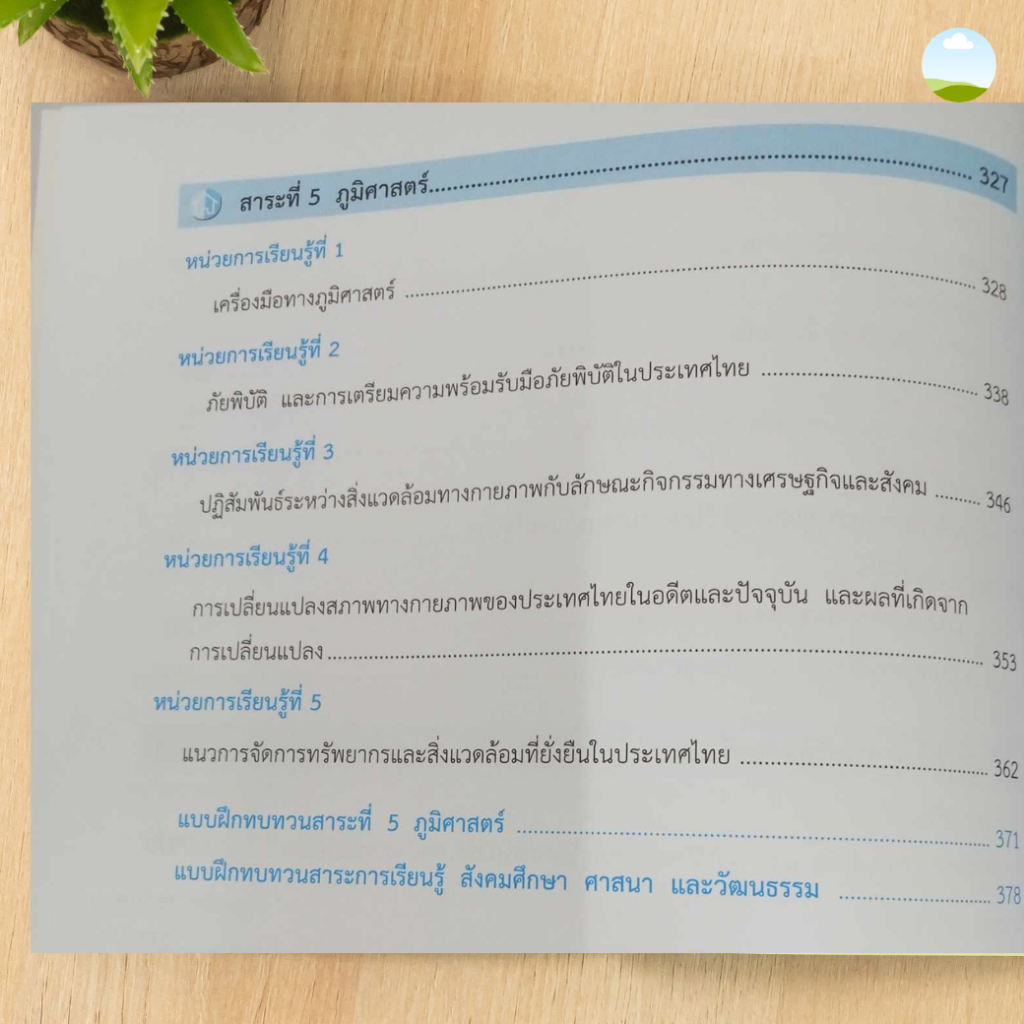 สาระที่ 5 ภูมิศาสตร์........................................................................................ 327
หน่วยการเรียนรู้ที่ 1
เครื่องมือทางภูมิศาสตร์ ........................................................................................ 328
หน่วยการเรียนรู้ที่ 2
ภัยพิบัติ และการเตรียมความพร้อมรับมือภัยพิบัติในประเทศไทย .................................. 338
หน่วยการเรียนรู้ที่ 3
ปฏิสัมพันธ์ระหว่างสิ่งแวดล้อมทางกายภาพกับลักษณะกิจกรรมทางเศรษฐกิจและสังคม ......... 346
หน่วยการเรียนรู้ที่ 4
การเปลี่ยนแปลงสภาพทางกายภาพของประเทศไทยในอดีตและปัจจุบัน และผลที่เกิดจาก
การเปลี่ยนแปลง........................................................................................ 353
หน่วยการเรียนรู้ที่ 5
แนวการจัดการทรัพยากรและสิ่งแวดล้อมที่ยั่งยืนในประเทศไทย ...................................... 362
แบบฝึกทบทวนสาระที่ 5 ภูมิศาสตร์ ........................................................................ 371
แบบฝึกทบทวนสาระการเรียนรู้ สังคมศึกษา ศาสนา และวัฒนธรรม .......................... 378